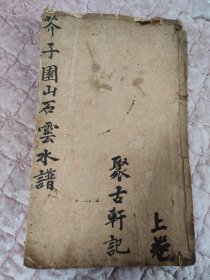 芥子園山石雲水譜
聚古軒記
上卷